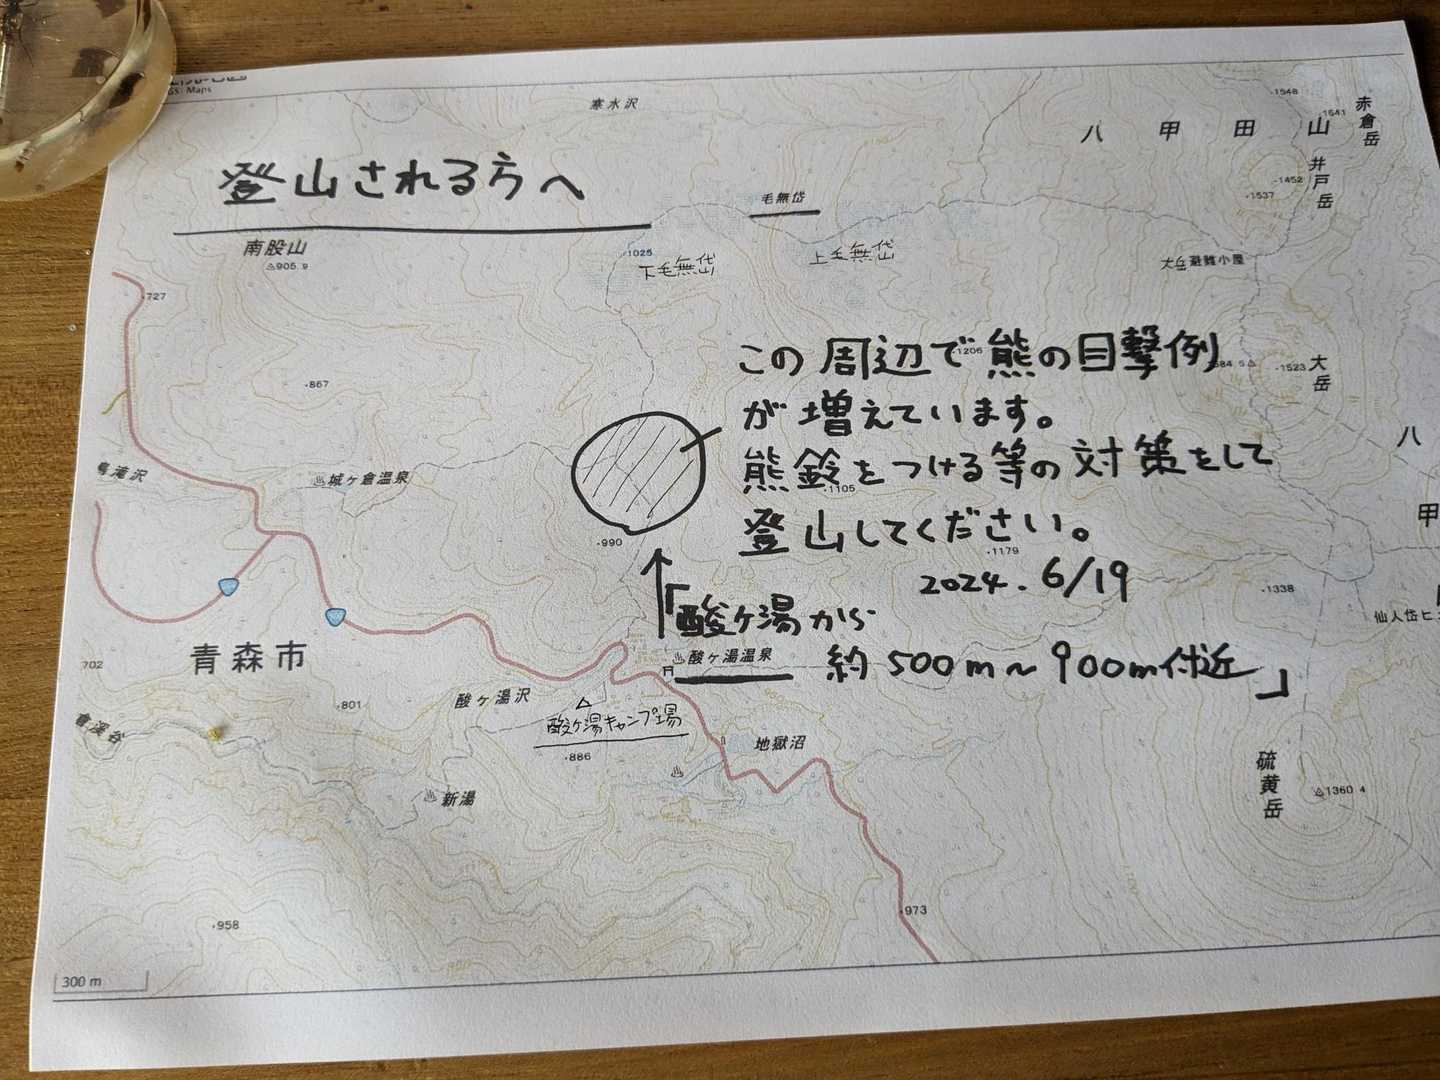 GS Maps
寒水沢
八甲田山
1548
1541
赤倉岳
井戸岳
1452
1537
登山される方へ
毛無岱
南股山
905.9
1025
下毛無岱
上毛無岱
大岳避難小屋
727
867
この周辺で熊の目撃例
1206
584.5
1523
大岳
が増えています。
八
甲
熊鈴をつける等の対策をして
1105
城ヶ倉温泉
登山してください。
990
1179
2024.6/19
1338
仙人岱ヒ
「酸ヶ湯から
約500m~900m付近」
酸ヶ湯温泉
青森市
702
801
酸ヶ湯沢
酸ヶ湯キャンプ場
886
地獄沼
新湯
硫黄岳
1360.4
958
973
300 m